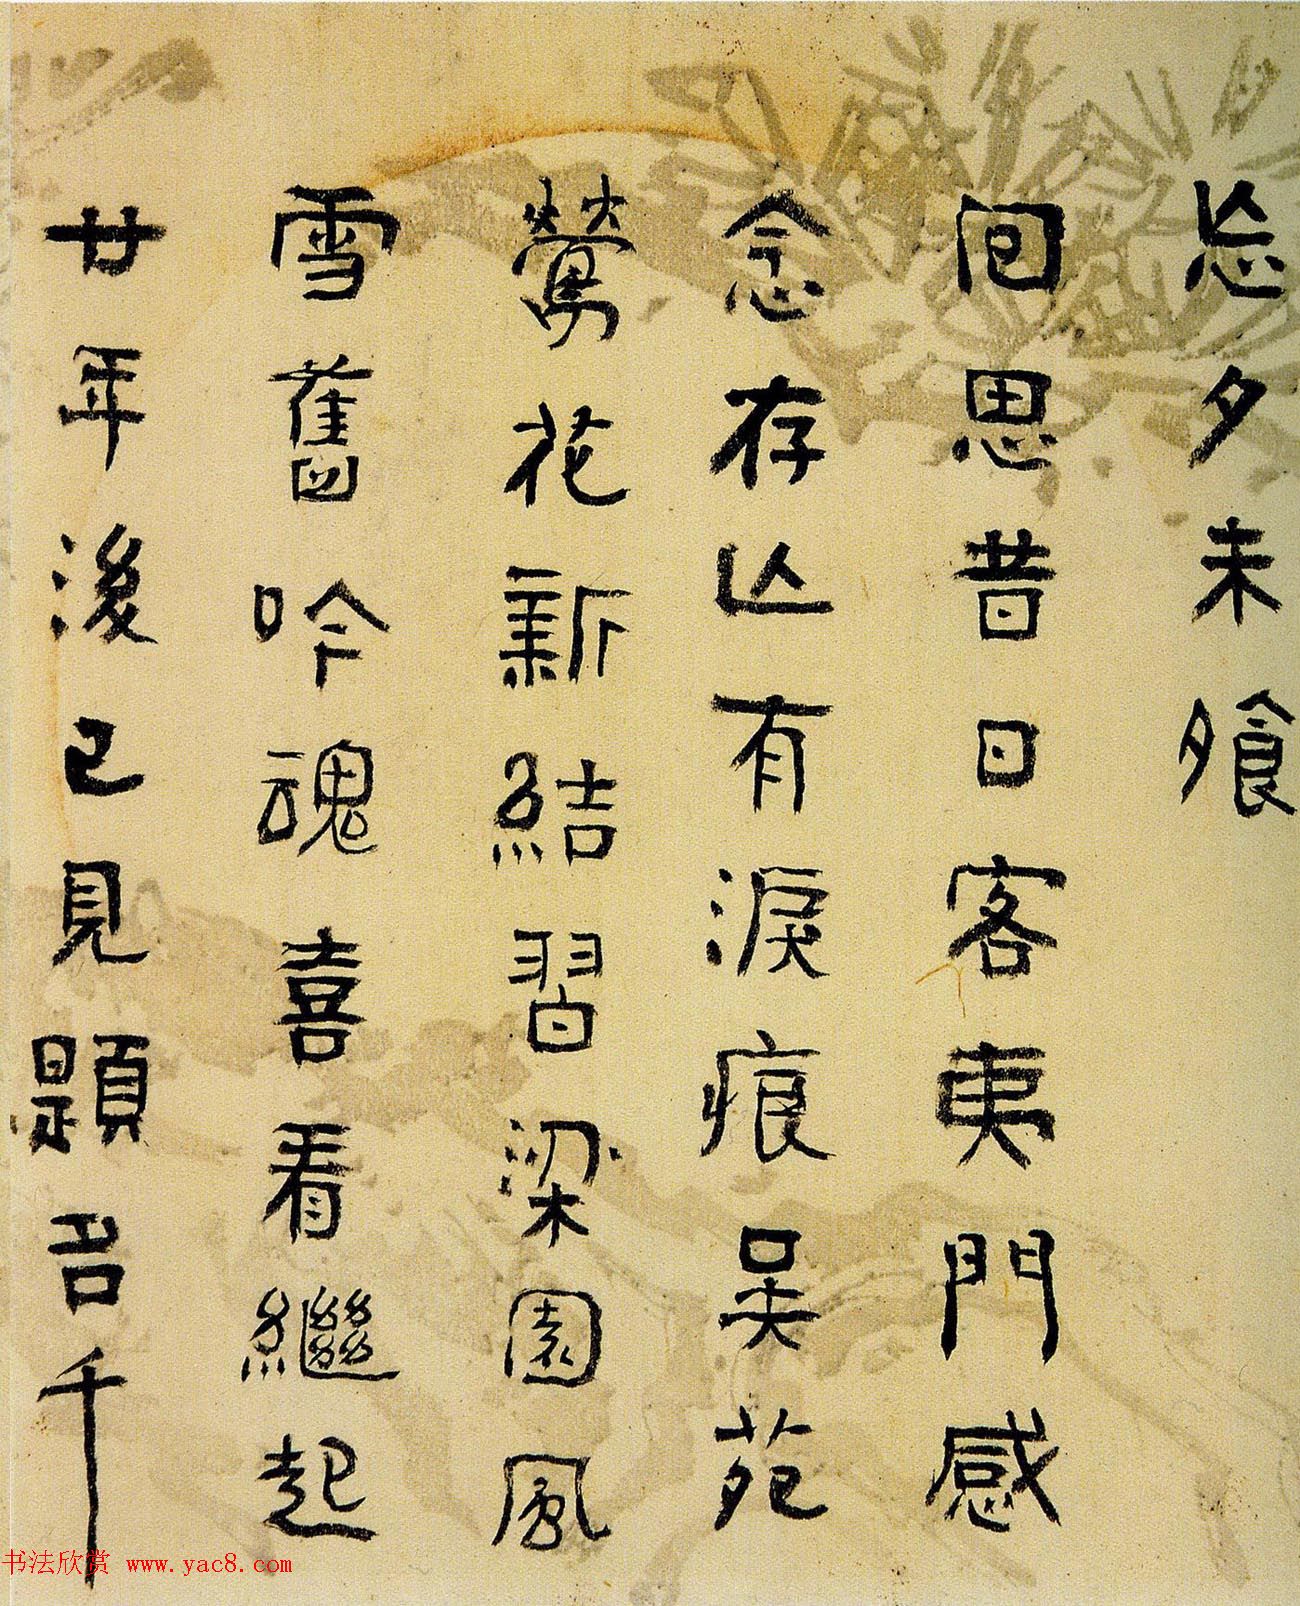 忘夕未飧
囘思昔日客夷門感
念存亾有淚痕吳苑
鶯花新結習梁園風
雪舊吟魂喜看繼起
廿年後已見題名千
书法欣赏 www.yac8.com